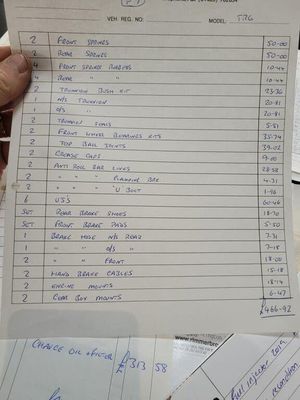 VEH. REG. NO: MODEL: TR6
2 FRONT SPRINGS 50-00
2 REAR SPRINGS 50-00
4 FRONT SPRING RUBBERS 10-44
4 REAR " " 10-44
2 TRUNNION BUSH KIT 23-36
1 N/S TRUNNION 20-81
1 O/S " 20-81
2 TRUNNION SEALS 5-51
2 FRONT WHEEL BEARINGS KITS 35-74
2 TOP BALL JOINTS 39-02
2 GREASE CAPS 9-00
2 ANTI ROLL BAR LINKS 28-58
2 " " " 4-31
2 " " " 'U' BOLT 1-96
6 UJ'S 60-46
SET REAR BRAKE SHOES 18-70
SET FRONT BRAKE PADS 5-50
1 BRAKE HOSE N/S REAR 7-31
1 " " O/S " 7-18
2 " " FRONT 18-00
2 HAND BRAKE CABLES 15-18
2 ENGINE MOUNTS 18-14
2 GEAR BOX MOUNTS 6-47
£466-92
www.rimmerbro
CHANGE OIL + FILTER
£313 58
Fuel injector